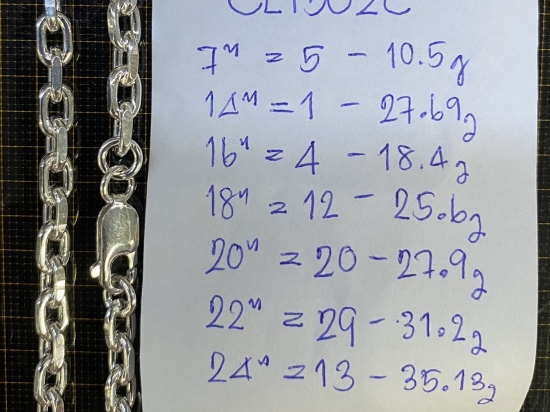 7" = 5 - 10.5g
14" = 1 - 27.69g
16" = 4 - 18.4g
18" = 12 - 25.6g
20" = 20 - 27.9g
22" = 29 - 31.2g
24" = 13 - 35.13g